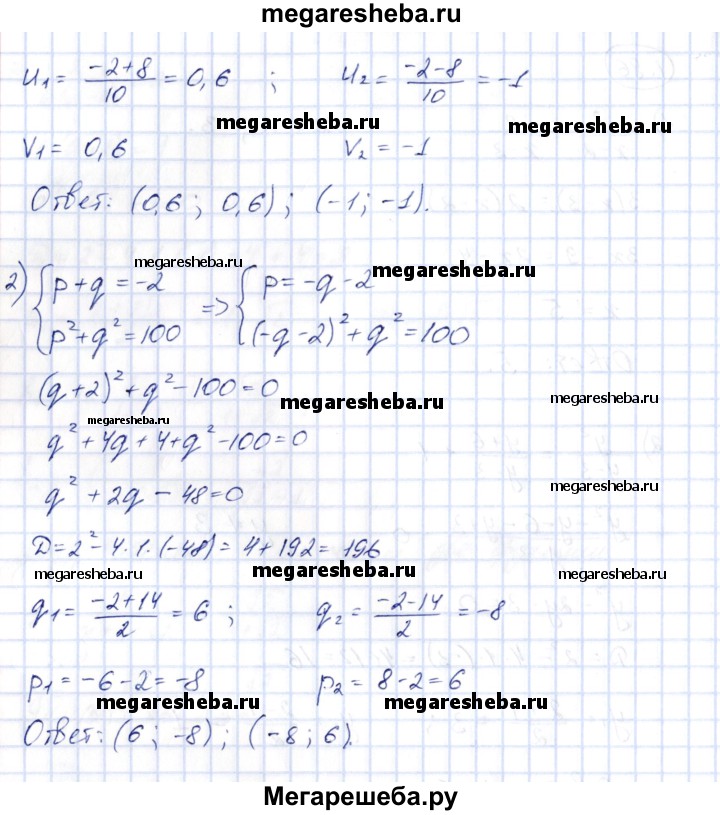 megaresheba.ru
u₁ = (-2+8)/10 = 0,6 ; u₂ = (-2-8)/10 = -1
megaresheba.ru megaresheba.ru
v₁ = 0,6 v₂ = -1
Ответ: (0,6 ; 0,6) ; (-1 ; -1).
megaresheba.ru megaresheba.ru
2) { p + q = -2 => { p = -q - 2
{ p² + q² = 100 { (-q - 2)² + q² = 100
(q + 2)² + q² - 100 = 0
megaresheba.ru megaresheba.ru
megaresheba.ru
q² + 4q + 4 + q² - 100 = 0
q² + 2q - 48 = 0
megaresheba.ru
D = 2² - 4 · 1 · (-48) = 4 + 192 = 196
megaresheba.ru megaresheba.ru megaresheba.ru
q₁ = (-2+14)/2 = 6 ; q₂ = (-2-14)/2 = -8
p₁ = -6 - 2 = -8 p₂ = 8 - 2 = 6
megaresheba.ru megaresheba.ru
Ответ: (6 ; -8) ; (-8 ; 6).
Мегарешеба.ру